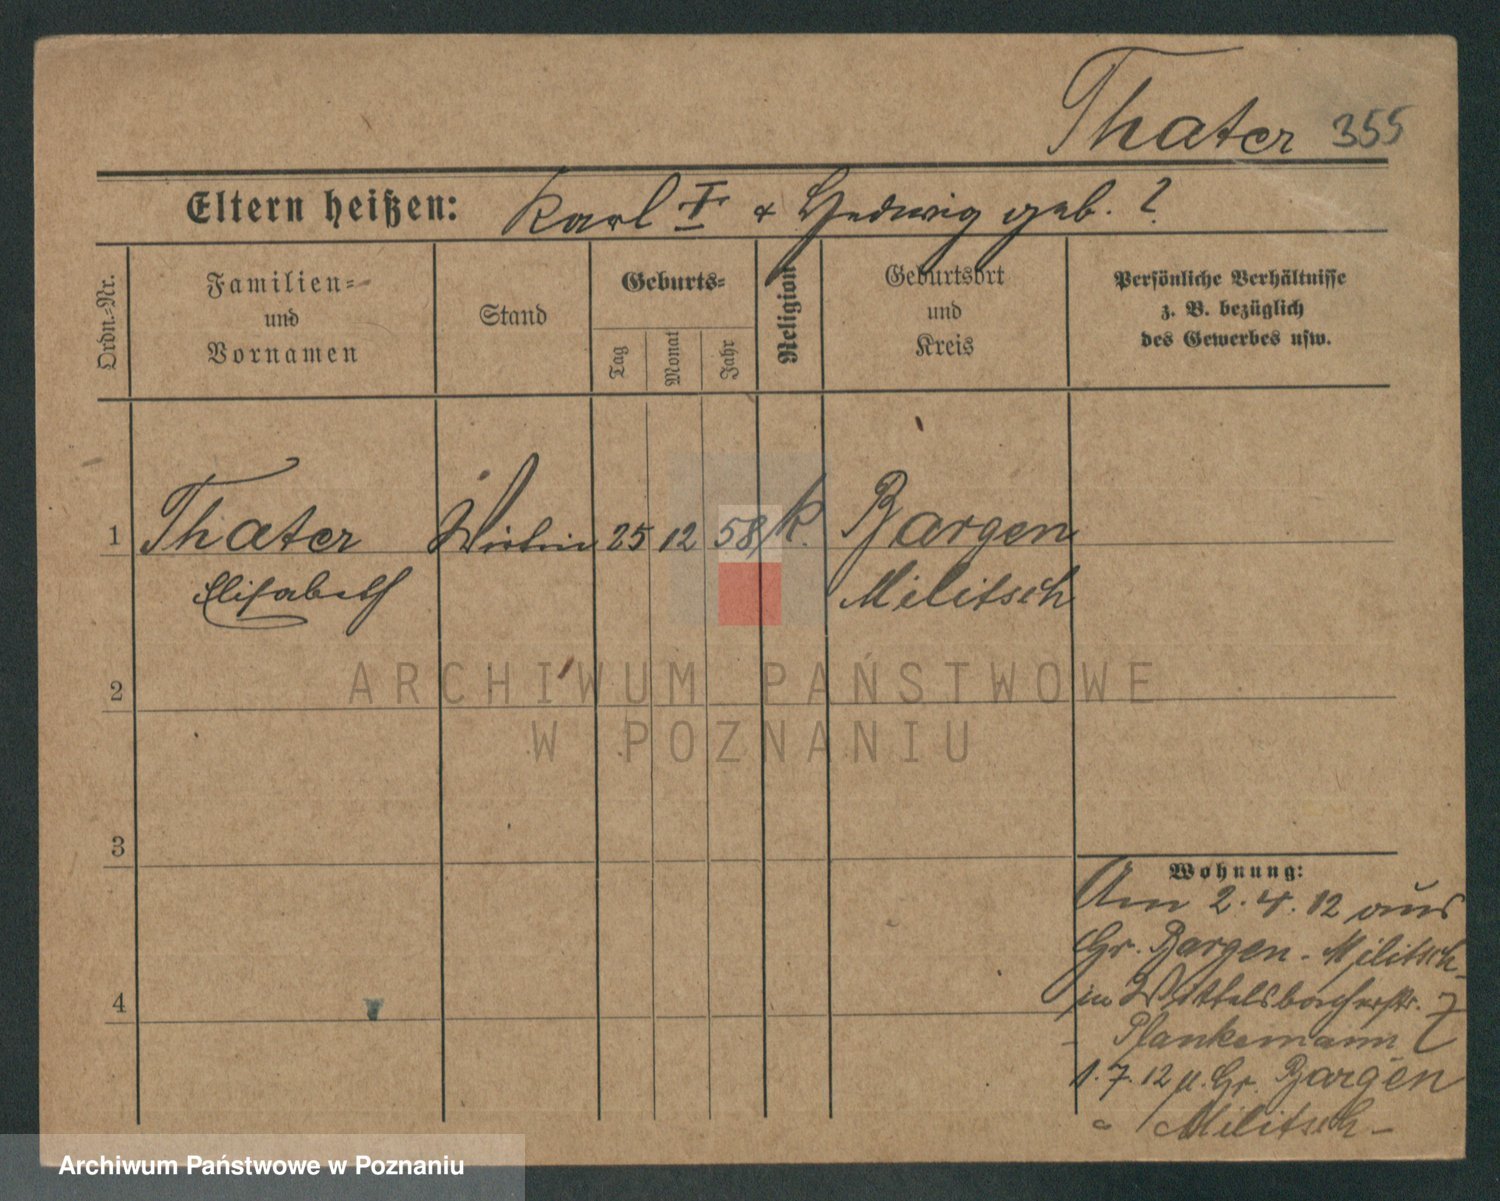 Thater 355
Eltern heißen: Karl T & Hedwig geb. ?
Ordn.=Nr.
Familien=
und
Vornamen
Stand
Geburts=
Tag
Monat
Jahr
Religion
Geburtsort
und
Kreis
Persönliche Verhältnisse
z. B. bezüglich
des Gewerbes usw.
1 Thater 25 12 58 k. Bargen
Elisabeth Militsch
ARCHIWUM PAŃSTWOWE
W POZNANIU
2
3
4
Wohnung:
Am 2.4.12 aus
Gr. Bargen - Militsch -
in Wittelsbacherstr. 7
- Plankemann
1.7.12 n. Gr. Bargen
Militsch -
Archiwum Państwowe w Poznaniu